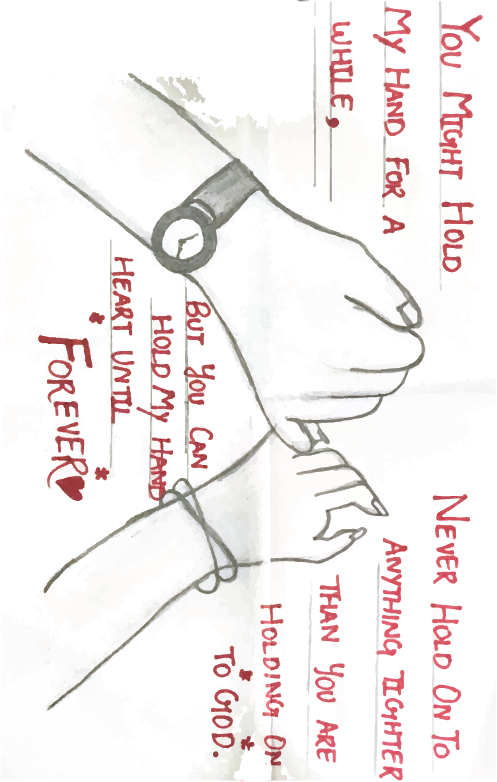 YOU MIGHT HOLD
MY HAND FOR A
WHILE,
BUT YOU CAN
HOLD MY HAND
HEART UNTIL
*FOREVER*
NEVER HOLD ON TO
ANYTHING TIGHTER
THAN YOU ARE
HOLDING ON
*TO GOD.*